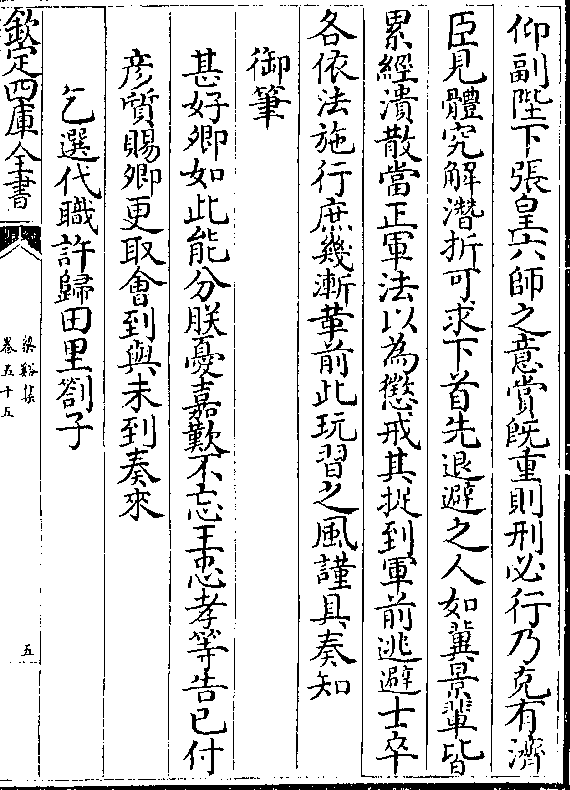 仰副陛下張皇六師之意賞既重則刑必行乃克有濟
臣見體究解潛折可求下首先退避之人如冀景輩皆
累經潰散當正軍法以為懲戒其捉到軍前逃避士卒
各依法施行庶幾漸革前此玩習之風謹具奏知
御筆
甚好卿如此能分朕憂嘉歎不忘王忠孝等告已付
彦質賜卿更取會到與未到奏來
乞選代職許歸田里劄子
欽定四庫全書
梁谿集
卷五十五
五